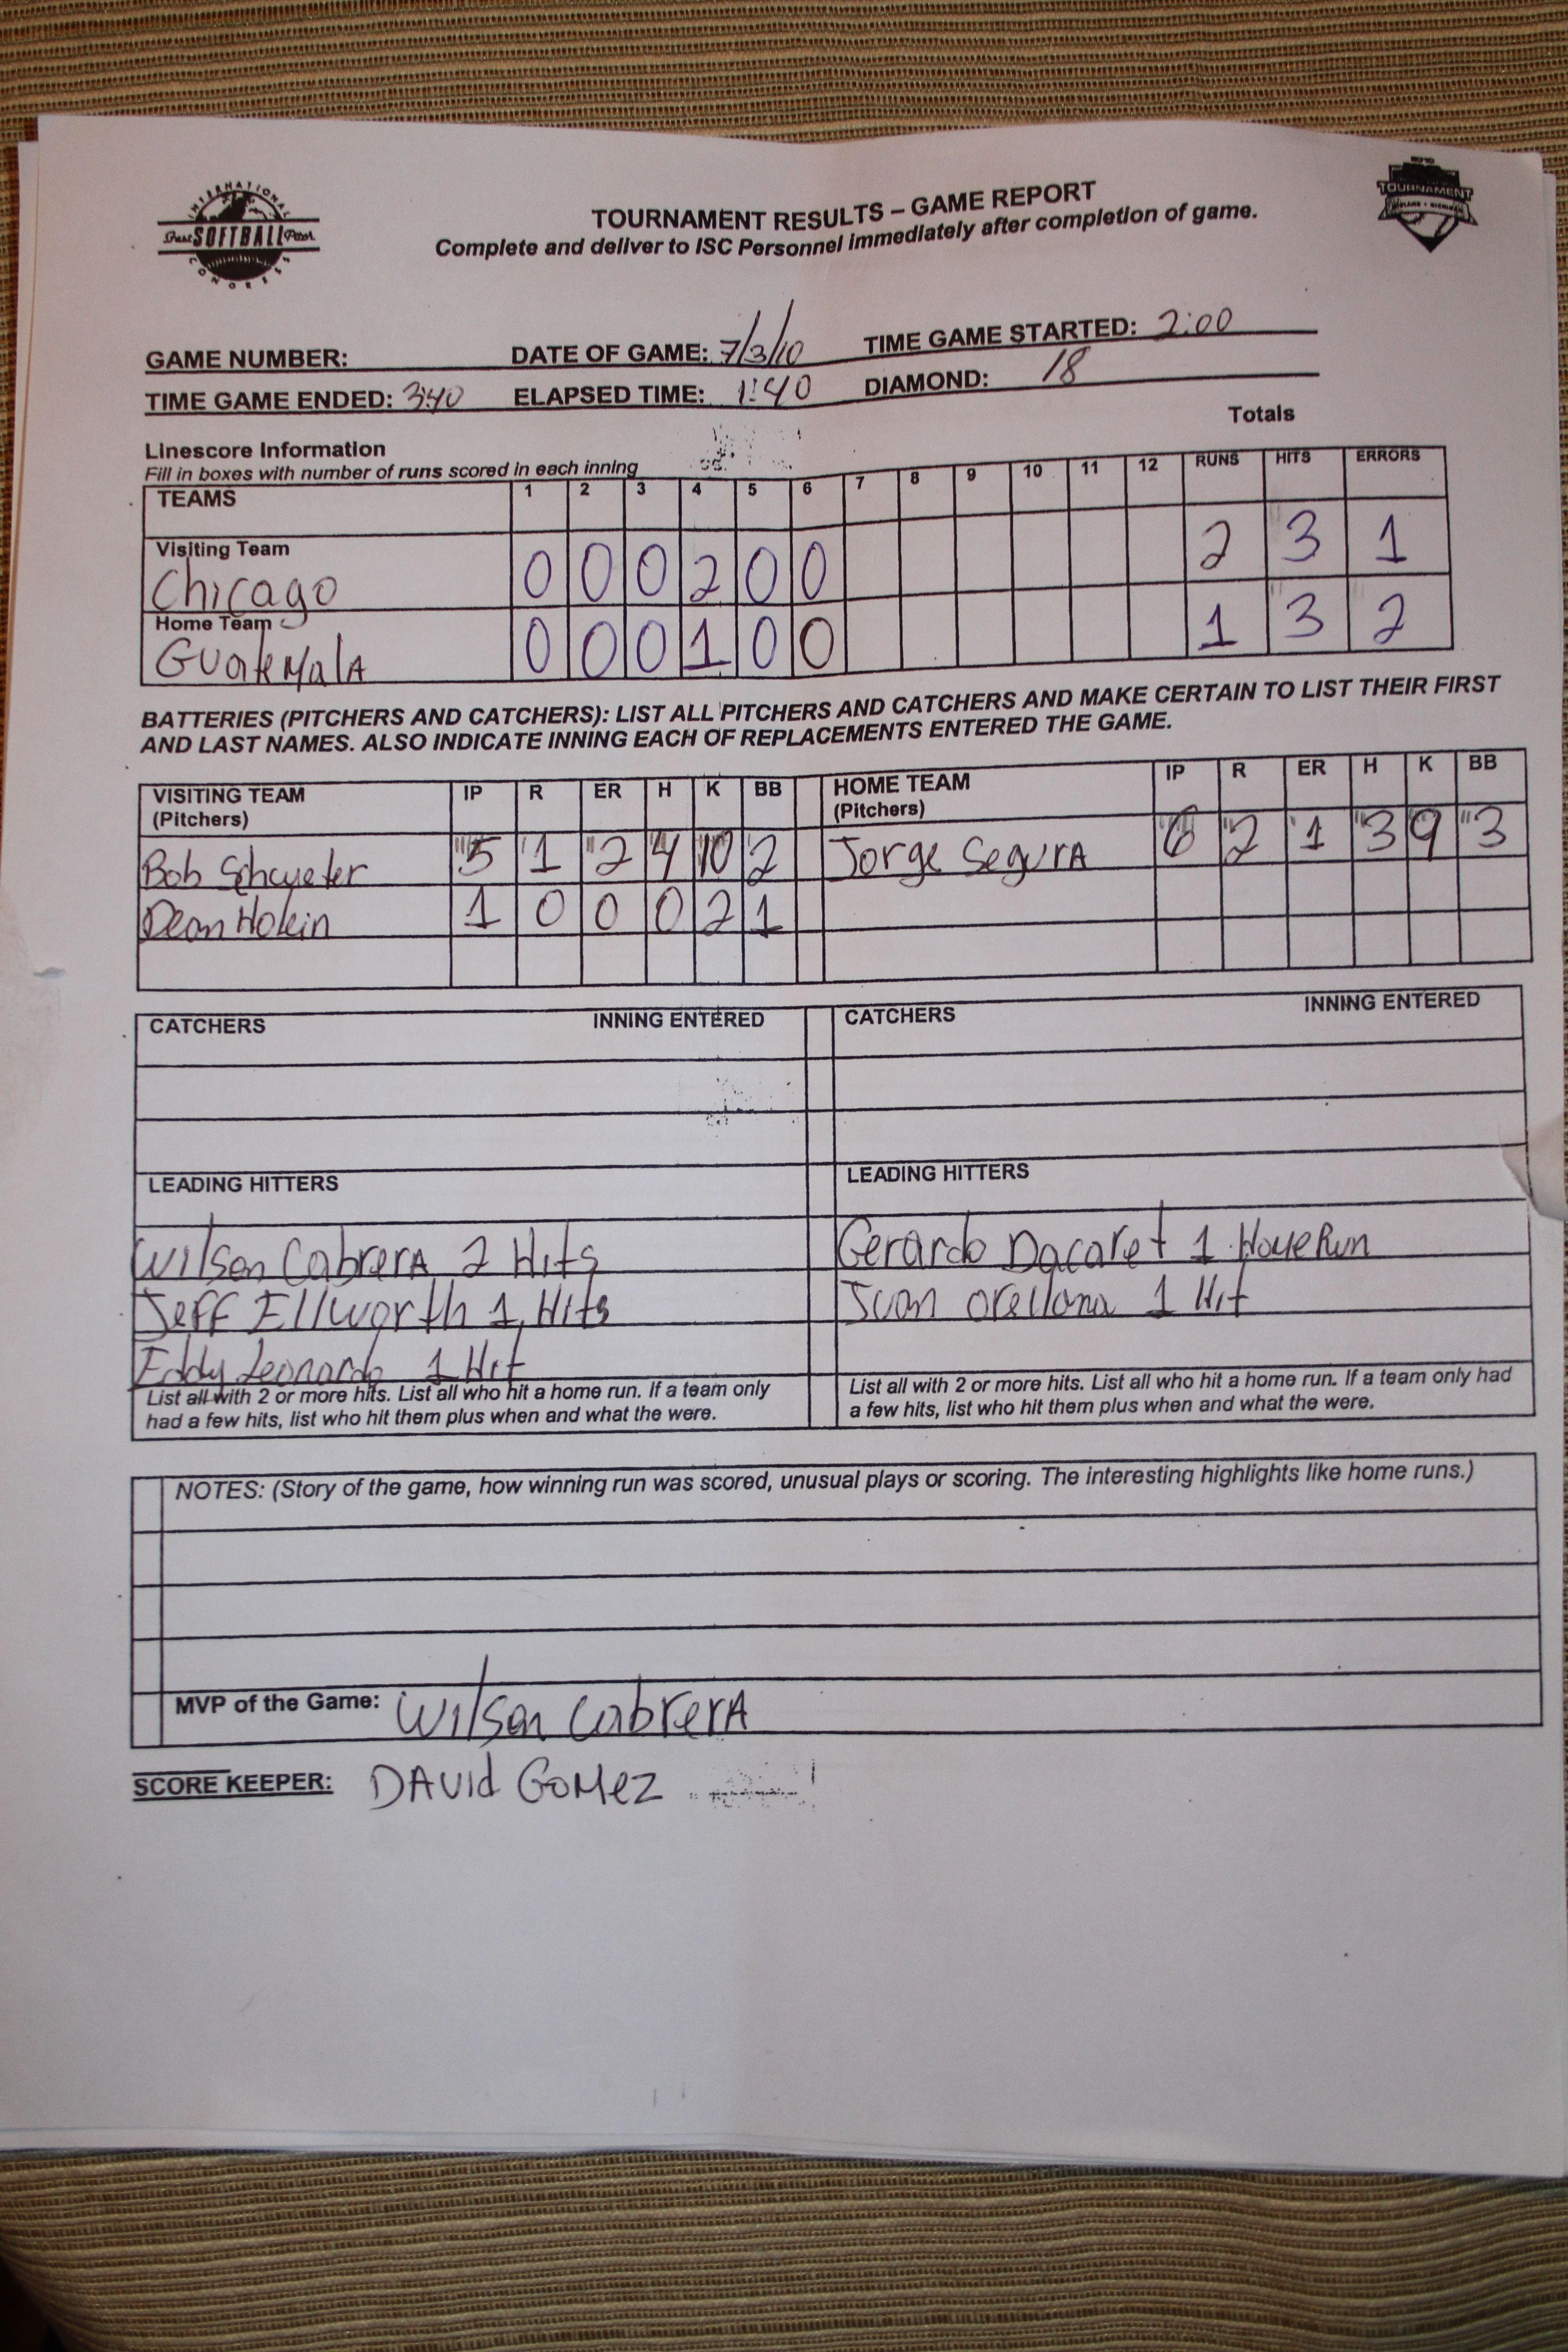 INTERNATIONAL
Fast SOFTBALL Pitch
CONGRESS
TOURNAMENT
TOURNAMENT RESULTS – GAME REPORT
Complete and deliver to ISC Personnel immediately after completion of game.
GAME NUMBER: DATE OF GAME: 7/3/10 TIME GAME STARTED: 2:00
TIME GAME ENDED: 3:40 ELAPSED TIME: 1:40 DIAMOND: 18
Totals
Linescore Information
Fill in boxes with number of runs scored in each inning
TEAMS 1 2 3 4 5 6 7 8 9 10 11 12 RUNS HITS ERRORS
Visiting Team
Chicago 0 0 0 2 0 0 2 3 1
Home Team
GuateMalA 0 0 0 1 0 0 1 3 2
BATTERIES (PITCHERS AND CATCHERS): LIST ALL PITCHERS AND CATCHERS AND MAKE CERTAIN TO LIST THEIR FIRST
AND LAST NAMES. ALSO INDICATE INNING EACH OF REPLACEMENTS ENTERED THE GAME.
VISITING TEAM IP R ER H K BB HOME TEAM IP R ER H K BB
(Pitchers) (Pitchers)
Bob 5 1 2 4 10 2 Jorge SegurA 6 2 1 3 9 3
Dean Holein 1 0 0 0 2 1
CATCHERS INNING ENTERED CATCHERS INNING ENTERED
LEADING HITTERS LEADING HITTERS
Wilson CabrerA 2 Hits Gerardo Dacaret 1 HomeRun
Jeff Ellworth 1 Hits Juan orellana 1 Hit
Eddy Leonardo 1 Hit
List all with 2 or more hits. List all who hit a home run. If a team only List all with 2 or more hits. List all who hit a home run. If a team only had
had a few hits, list who hit them plus when and what the were. a few hits, list who hit them plus when and what the were.
NOTES: (Story of the game, how winning run was scored, unusual plays or scoring. The interesting highlights like home runs.)
MVP of the Game: Wilson CabrerA
SCORE KEEPER: DAVid GoMez